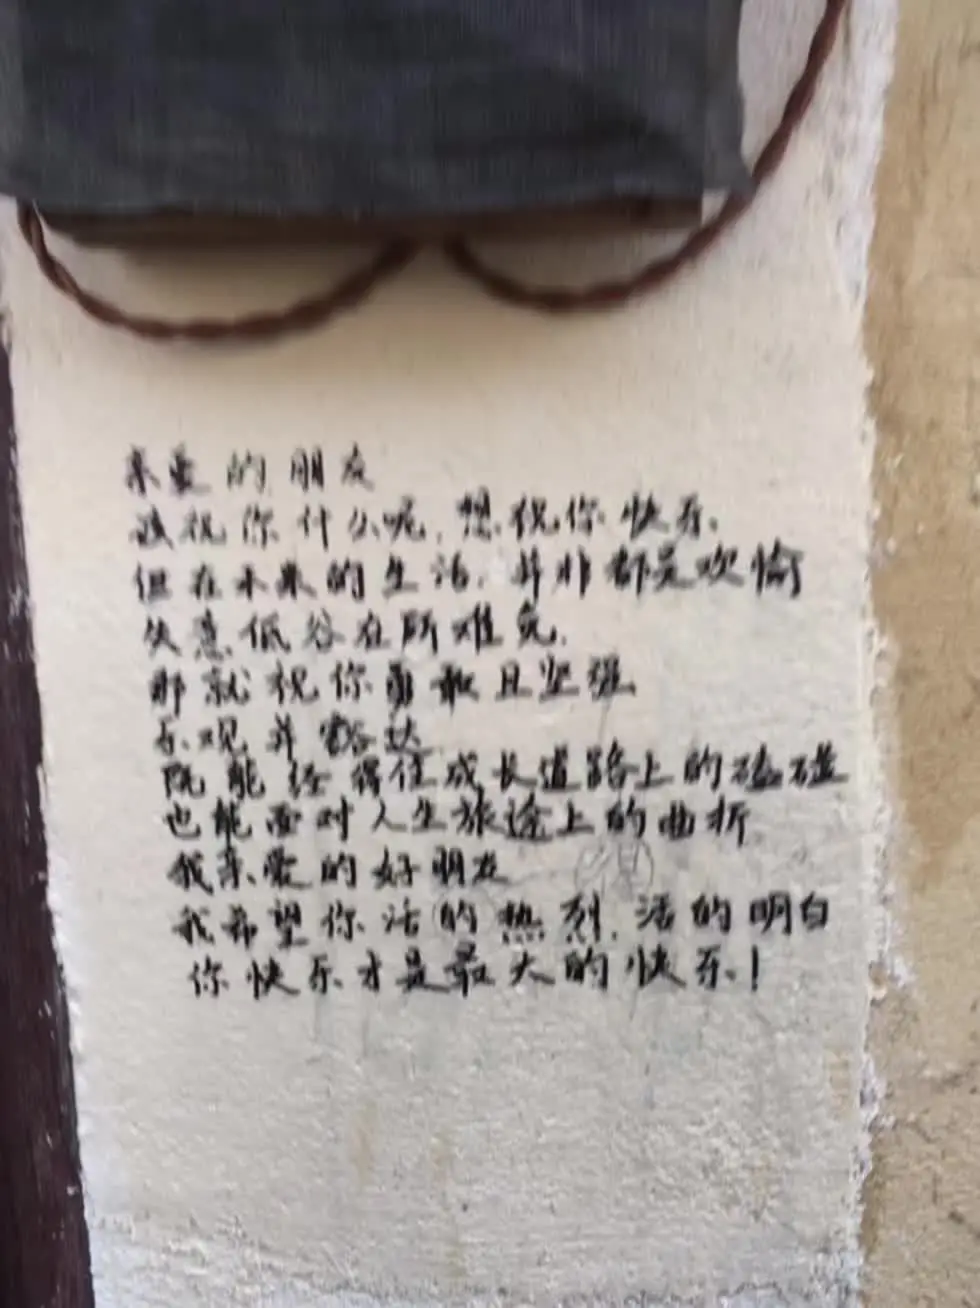 亲爱的朋友
该祝你什么呢,想祝你快乐,
但在未来的生活,并非都是欢愉
失意低谷在所难免,
那就祝你勇敢且坚强
乐观并豁达
既能经得住成长道路上的磕碰
也能面对人生旅途上的曲折
我亲爱的好朋友
我希望你活的热烈,活的明白
你快乐才是最大的快乐!